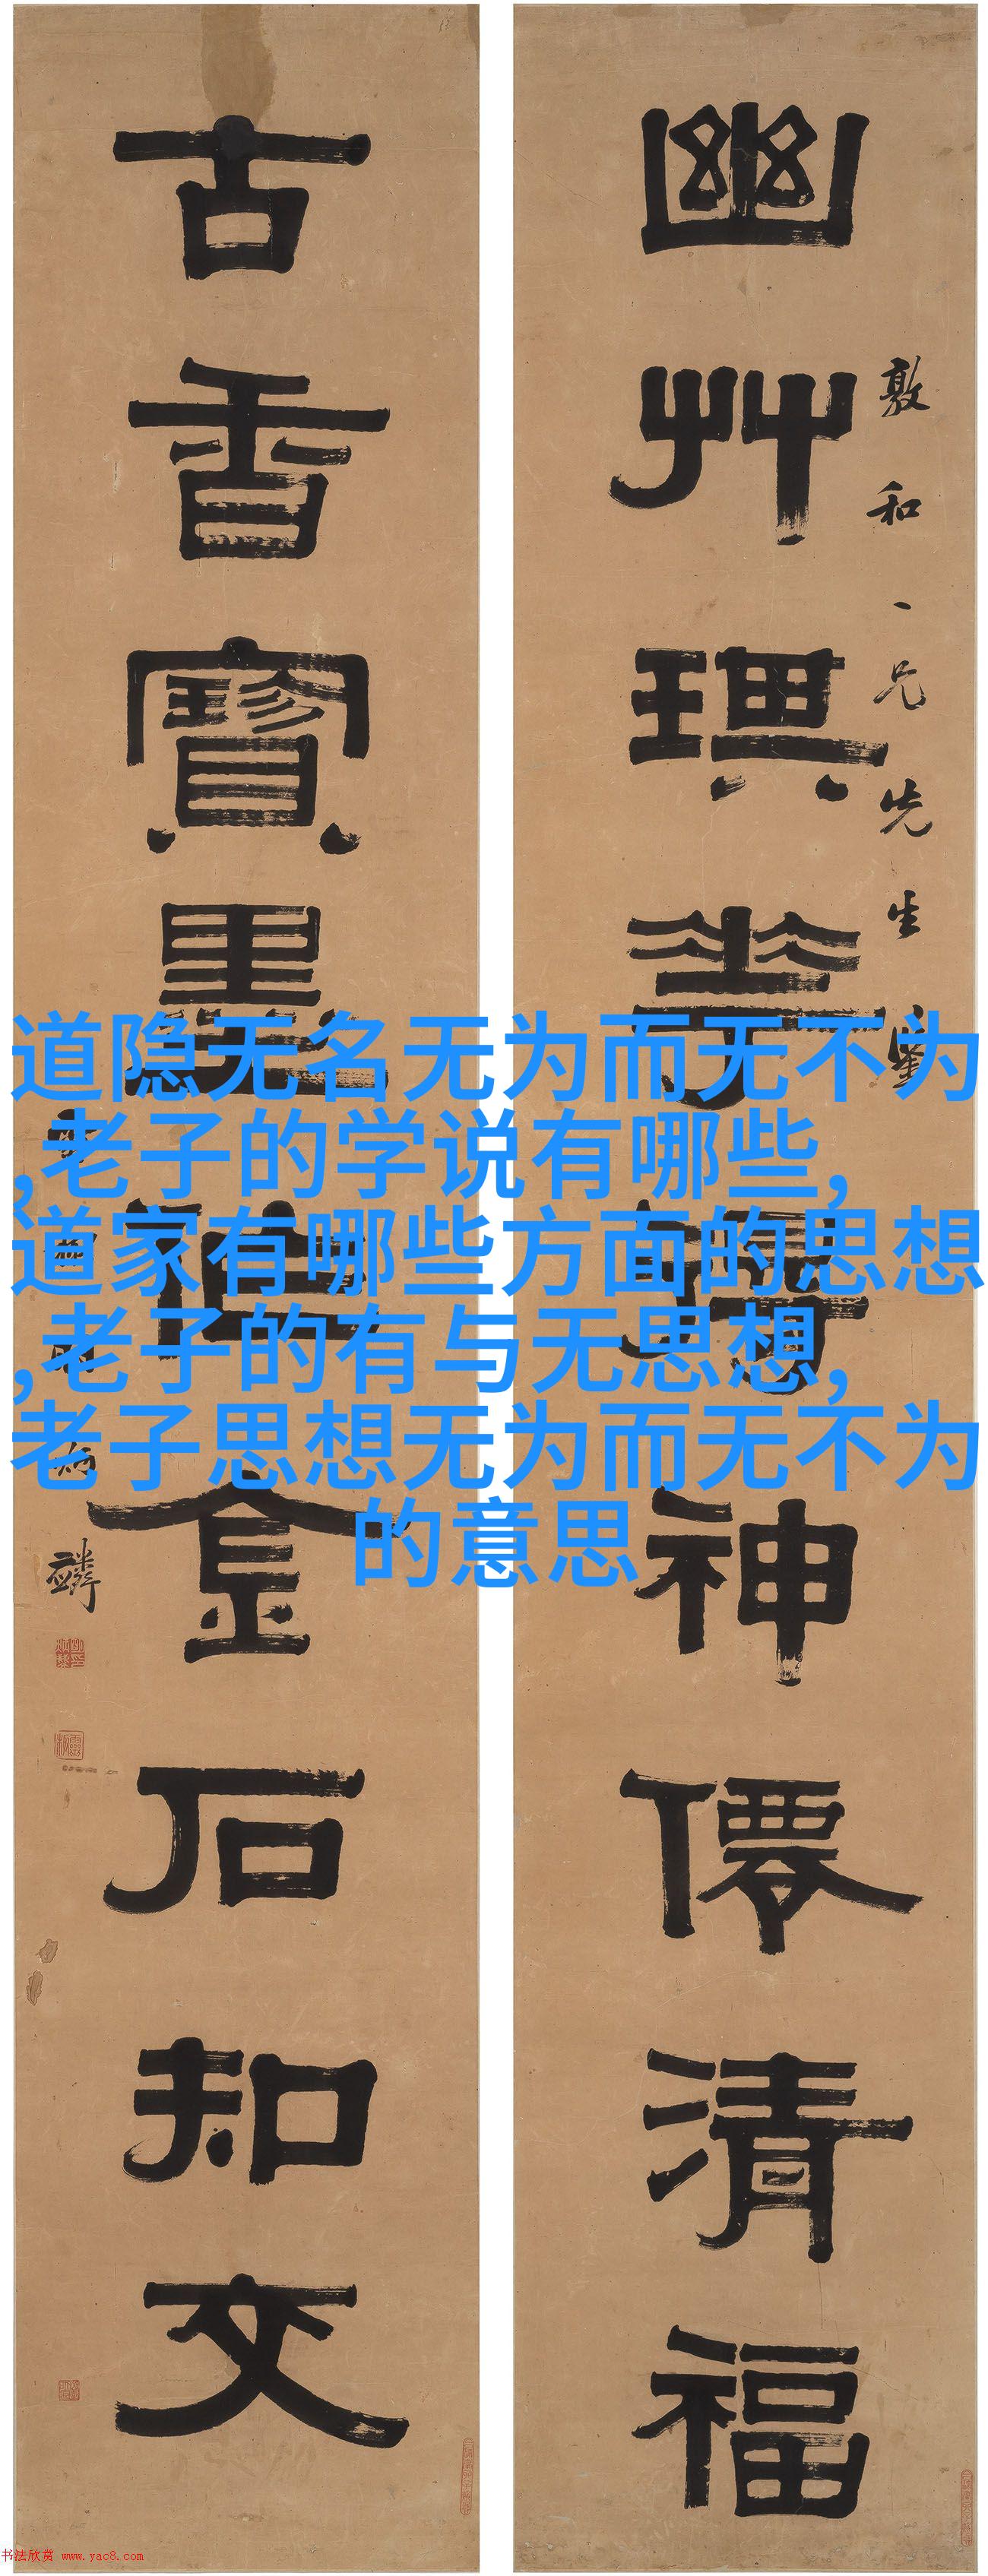 幽艸琪華神僊清福
敦和一兄先生鑒
古香寶墨金石知文
道隐无名无为而无不为
,老子的学说有哪些,
道家有哪些方面的思想
,老子的有与无思想,
老子思想无为而无不为
的意思
书法欣赏 www.yac8.com